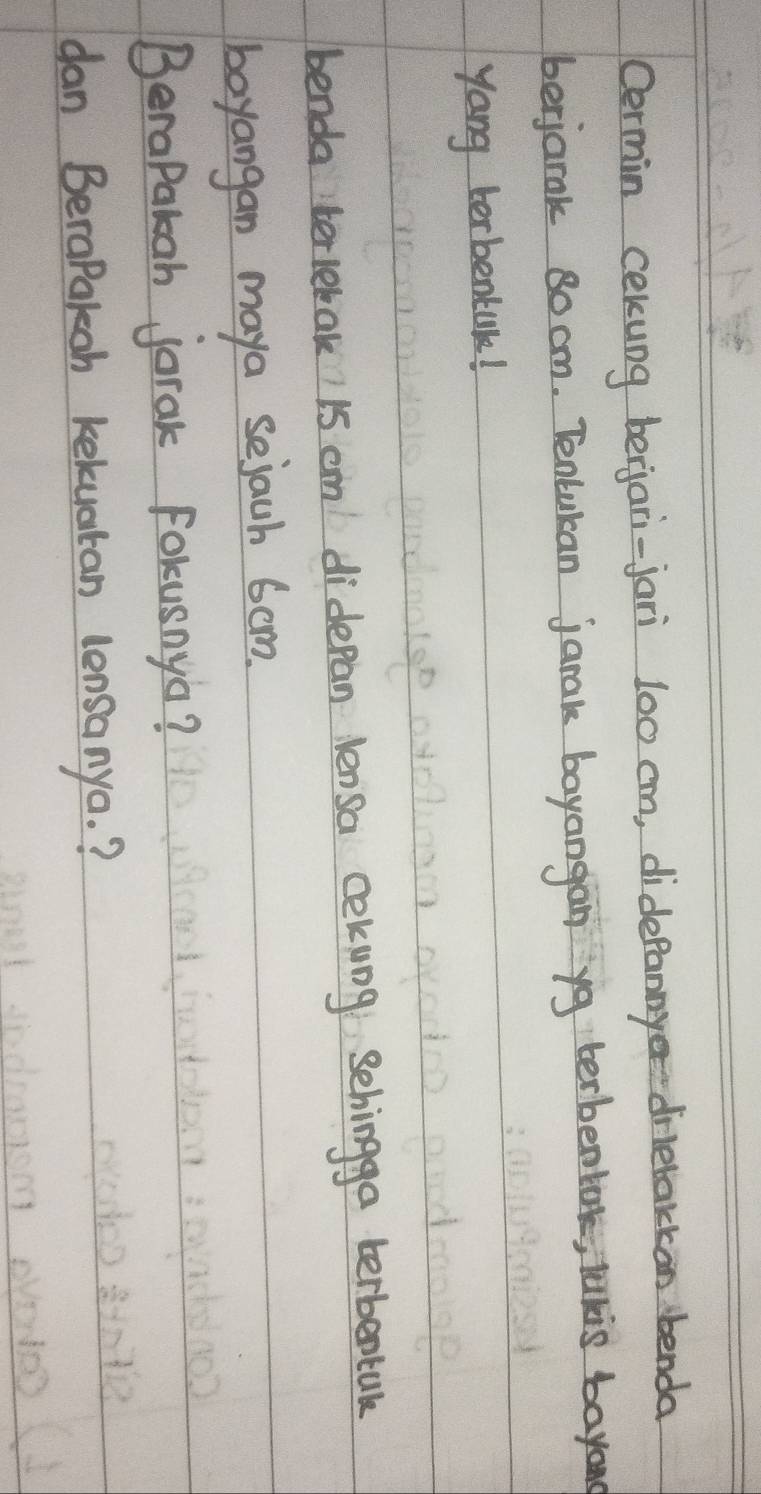 Cermin cekung berjari-jari 100 cm, didepannya diletakkan benda
berjarak 80 cm. Tentukan jarak bayangan yg terbentuk, lukis bayang
yang terbentuk!
benda terletak 15 cm didepan lensa cekung sehingga terbentuk
bayangan maya sejauh 6cm.
BeraPakah jarak Fokusnya?
dan BeraPakah kekuatan lensanya.?